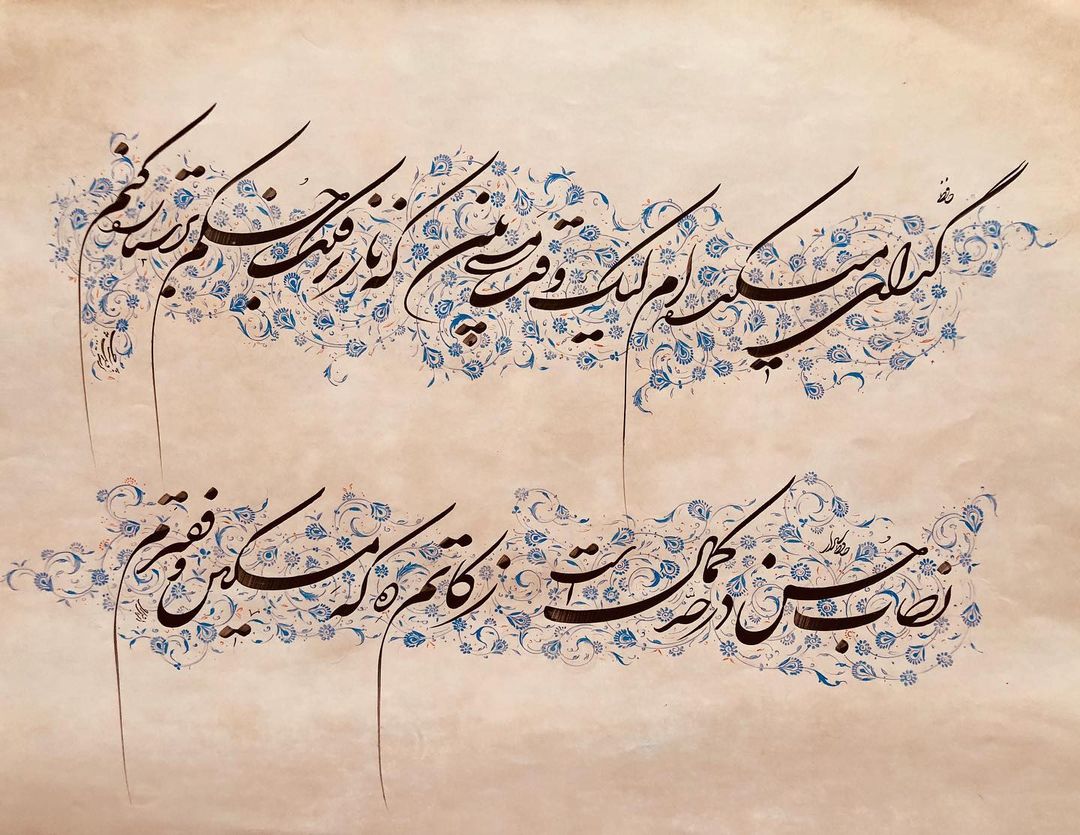 حافظ
گدای میکده ام لیک وقت مستی بین که ناز بر فلک و حکم بر ستاره کنم
نصاب حسن در حدّ کمال است زکاتم ده که مسکین و فقیرم